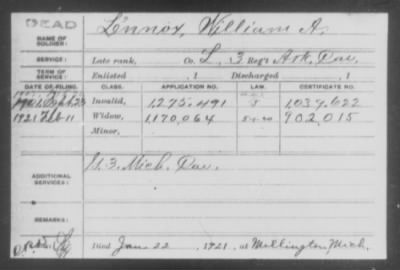 DEAD
NAME OF SOLDIER: Lennox, William A.
SERVICE: Late rank, Co. L, 3 Reg't Ark. Cav.
TERM OF SERVICE: Enlisted , 1 Discharged , 1
DATE OF FILING. CLASS. APPLICATION NO. LAW. CERTIFICATE NO.
Invalid, 1,275,491 1,039,622
1921 Feb 11 Widow, 1,170,064 5-1-20 902,015
Minor,
ADDITIONAL SERVICES: 3. Mich. Cav.
REMARKS:
Died Jan 22 1921, at Wellington, Mich.